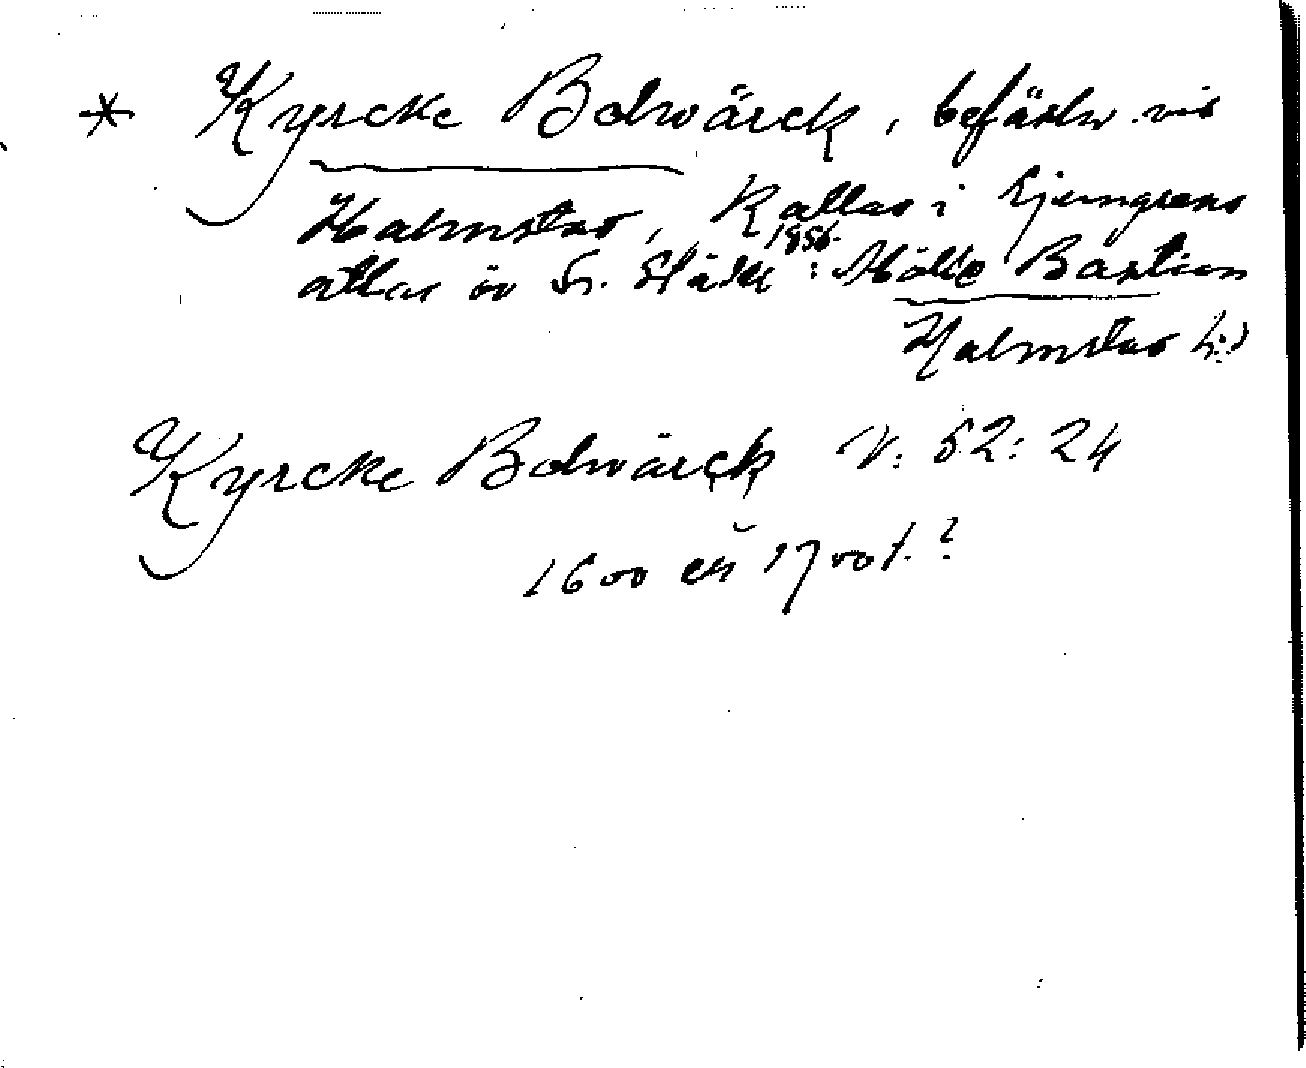 * Kyrcke Bolwärck, befästn. vid
Halmstad, kallas i Ljunggrens
atlas öv Sv. Städer 1856: Mölle Bastion
Halmstad h:d
Kyrcke Bolwärck V: 52: 24
1600 el 1700 t.?